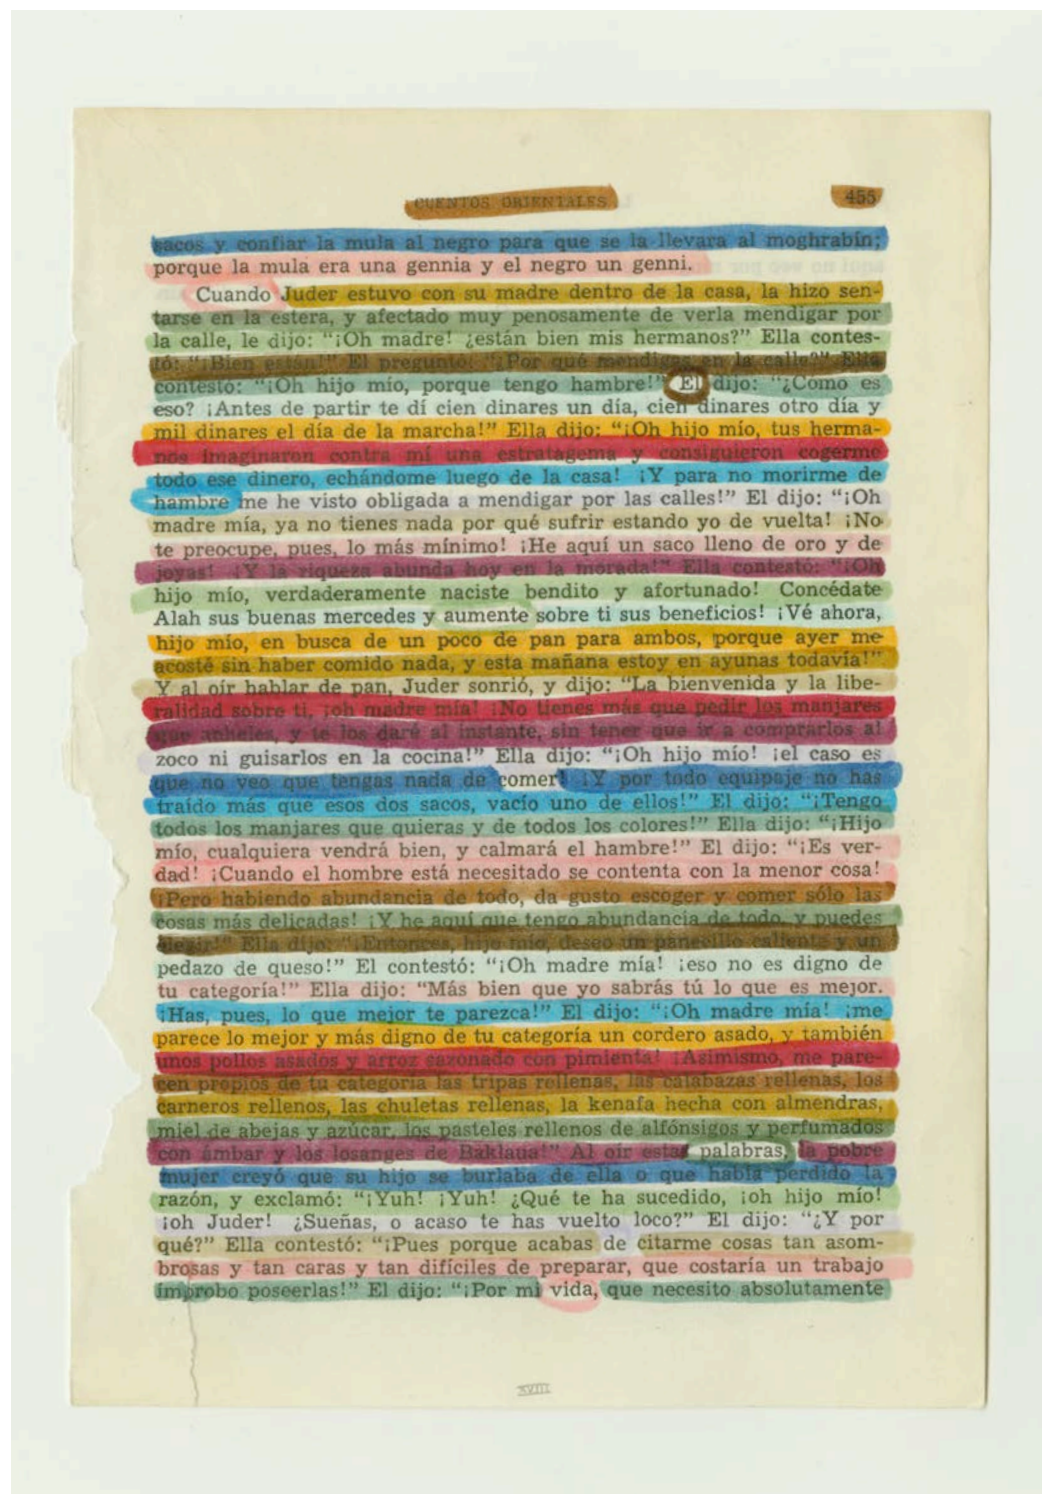 CUENTOS ORIENTALES 455
sacos y confiar la mula al negro para que se la llevara al moghrabín;
porque la mula era una gennia y el negro un genni.
Cuando Juder estuvo con su madre dentro de la casa, la hizo sen-
tarse en la estera, y afectado muy penosamente de verla mendigar por
la calle, le dijo: “¡Oh madre! ¿están bien mis hermanos?” Ella contes-
tó: “¡Bien están!” El preguntó: “¿Por qué mendigas en la calle?” Ella
contestó: “¡Oh hijo mío, porque tengo hambre!” El dijo: “¿Cómo es
eso? ¡Antes de partir te dí cien dinares un día, cien dinares otro día y
mil dinares el día de la marcha!” Ella dijo: “¡Oh hijo mío, tus herma-
nos imaginaron contra mí una estratagema y consiguieron cogerme
todo ese dinero, echándome luego de la casa! ¡Y para no morirme de
hambre me he visto obligada a mendigar por las calles!” El dijo: “¡Oh
madre mía, ya no tienes nada por qué sufrir estando yo de vuelta! ¡No
te preocupe, pues, lo más mínimo! ¡He aquí un saco lleno de oro y de
joyas! ¡Y la riqueza abunda hoy en la morada!” Ella contestó: “¡Oh
hijo mío, verdaderamente naciste bendito y afortunado! Concédate
Alah sus buenas mercedes y aumente sobre ti sus beneficios! ¡Vé ahora,
hijo mío, en busca de un poco de pan para ambos, porque ayer me
acosté sin haber comido nada, y esta mañana estoy en ayunas todavía!”
Y al oír hablar de pan, Juder sonrió, y dijo: “La bienvenida y la libe-
ralidad sobre ti, ¡oh madre mía! ¡No tienes más que pedir los manjares
que anheles, y te los daré al instante, sin tener que ir a comprarlos al
zoco ni guisarlos en la cocina!” Ella dijo: “¡Oh hijo mío! ¡el caso es
que no veo que tengas nada de comer! ¡Y por todo equipaje no has
traído más que esos dos sacos, vacío uno de ellos!” El dijo: “¡Tengo
todos los manjares que quieras y de todos los colores!” Ella dijo: “¡Hijo
mío, cualquiera vendrá bien, y calmará el hambre!” El dijo: “¡Es ver-
dad! ¡Cuando el hombre está necesitado se contenta con la menor cosa!
¡Pero habiendo abundancia de todo, da gusto escoger y comer sólo las
cosas más delicadas! ¡Y he aquí que tengo abundancia de todo, y puedes
elegir!” Ella dijo: “¡Entonces, hijo mío, deseo un panecillo caliente y un
pedazo de queso!” El contestó: “¡Oh madre mía! ¡eso no es digno de
tu categoría!” Ella dijo: “Más bien que yo sabrás tú lo que es mejor.
¡Has, pues, lo que mejor te parezca!” El dijo: “¡Oh madre mía! ¡me
parece lo mejor y más digno de tu categoría un cordero asado, y también
unos pollos asados y arroz sazonado con pimienta! ¡Asimismo, me pare-
cen propios de tu categoría las tripas rellenas, las calabazas rellenas, los
carneros rellenos, las chuletas rellenas, la kenafa hecha con almendras,
miel de abejas y azúcar, los pasteles rellenos de alfónsigos y perfumados
con ámbar y los losanges de Baklaua!” Al oír estas palabras, la pobre
mujer creyó que su hijo se burlaba de ella o que había perdido la
razón, y exclamó: “¡Yuh! ¡Yuh! ¿Qué te ha sucedido, ¡oh hijo mío!
¡oh Juder! ¿Sueñas, o acaso te has vuelto loco?” El dijo: “¿Y por
qué?” Ella contestó: “¡Pues porque acabas de citarme cosas tan asom-
brosas y tan caras y tan difíciles de preparar, que costaría un trabajo
ímprobo poseerlas!” El dijo: “¡Por mi vida, que necesito absolutamente
XVIII